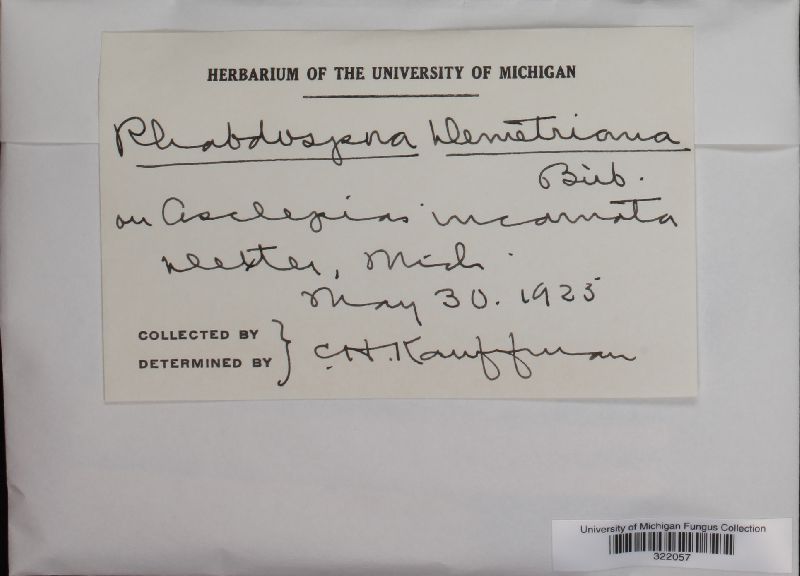 HERBARIUM OF THE UNIVERSITY OF MICHIGAN
Rhabdospora Demetriana
Bub.
on Asclepias incarnata
Dexter, Mich.
May 30. 1925
COLLECTED BY
DETERMINED BY } C.H. Kauffman
University of Michigan Fungus Collection
322057